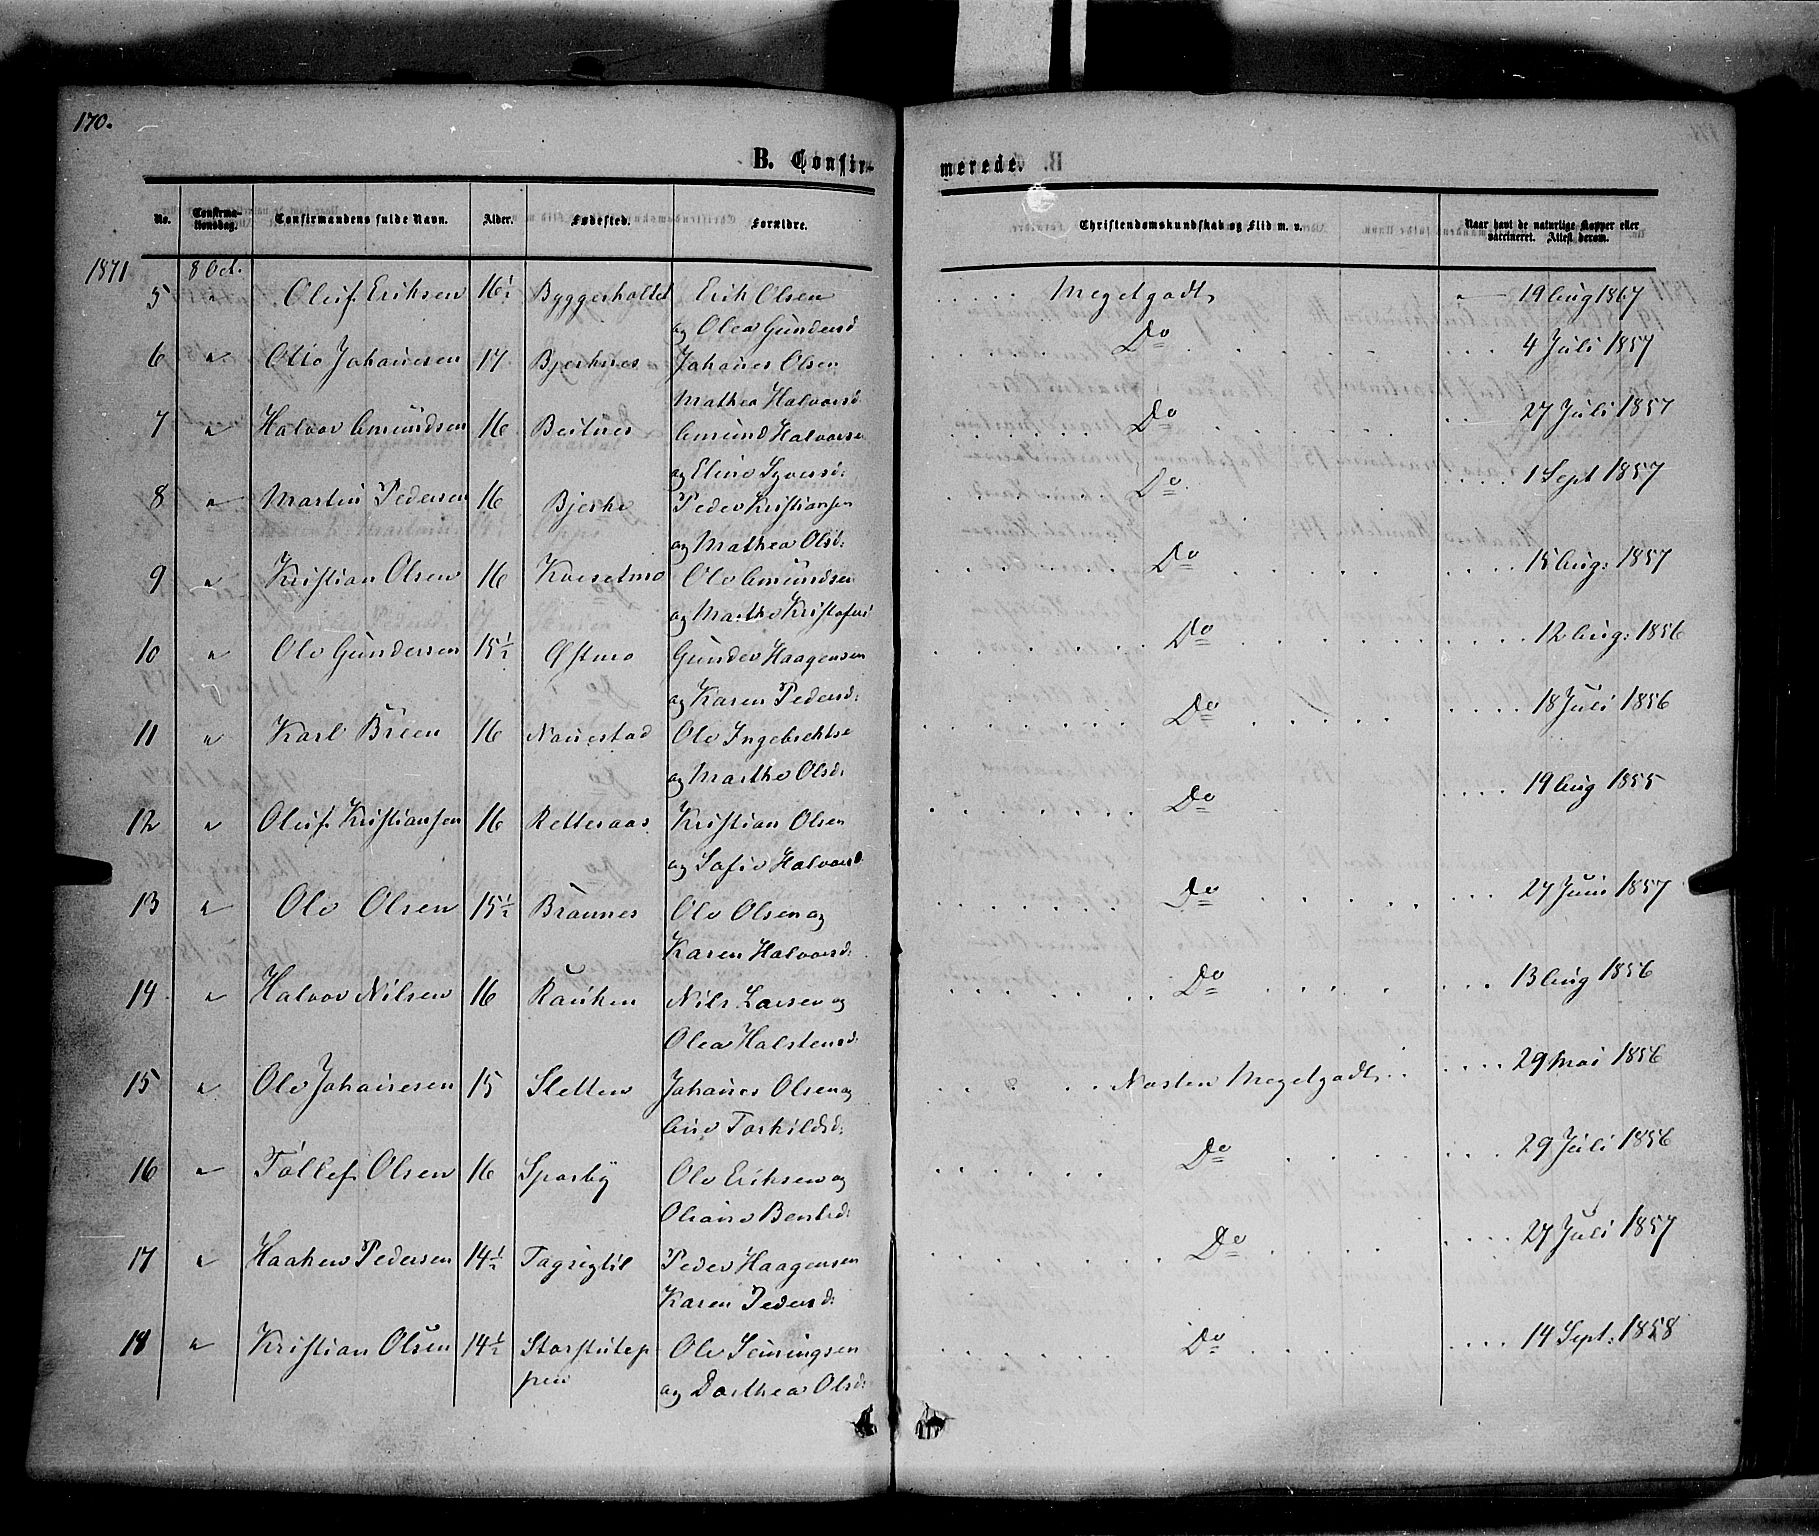 170.
B. Confirmerede.
No. Confirmationsdag. Confirmandens fulde Navn. Alder. Fødested. Forældre. Christendomskundskab og Flid m. v. Naar havt de naturlige Kopper eller vaccineret. Attest derom.
1871 8 Oct.
5 " Oluf Eriksen 16½ Byggerholtet Erik Olsen . . . . . Megetgodt " 19 Aug 1867
og Olea Gundersd
6 " Otto Johannesen 17 Bjerknes Johannes Olsen Do 4 Juli 1857
Mathea Halvorsd.
7 " Halvor Amundsen 16 Beitnes Amund Halvorsen Do 27 Juli 1857
og Eline Syversd:
8 " Martin Pedersen 16 Bjerke Peder Kristiansen Do 1 Sept 1857
og Mathea Olsd:
9 " Kristian Olsen 16 Ole Amundsen Do 15 Aug: 1857
og Marthe Kristofersd
10 " Ole Gundersen 15½ Østmo Gunder Haagensen Do 12 Aug: 1856
og Karen Pedersd:
11 " Karl Breen 16 Navestad Ole Ingebrektse Do 18 Juli 1856
og Marthe Olsd:
12 " Oluf Kristiansen 16 Retteraas Kristian Olsen Do 19 Aug 1855
og Sofie Halvorsd
13 " Ole Olsen 15½ Braunes Ole Olsen og Do 27 Juni 1857
Karen Halvorsd:
14 " Halvor Nilsen 16 Rauken Nils Larsen og Do 13 Aug 1856
Olea Halstensd:
15 " Ole Johannesen 15 Sletten Johannes Olsen og Næsten Megetgodt 29 Mai 1856
Ane Torkildsd:
16 " Tollef Olsen 16 Sparby Ole Eriksen og Do 29 Juli 1856
Oliane Bentsd:
17 " Haaken Pedersen 14½ Peder Haagensen Do 27 Juli 1857
Karen Pedersd:
18 " Kristian Olsen 14½ Ole Semingsen Do 14 Sept: 1858
og Dorthea Olsd: